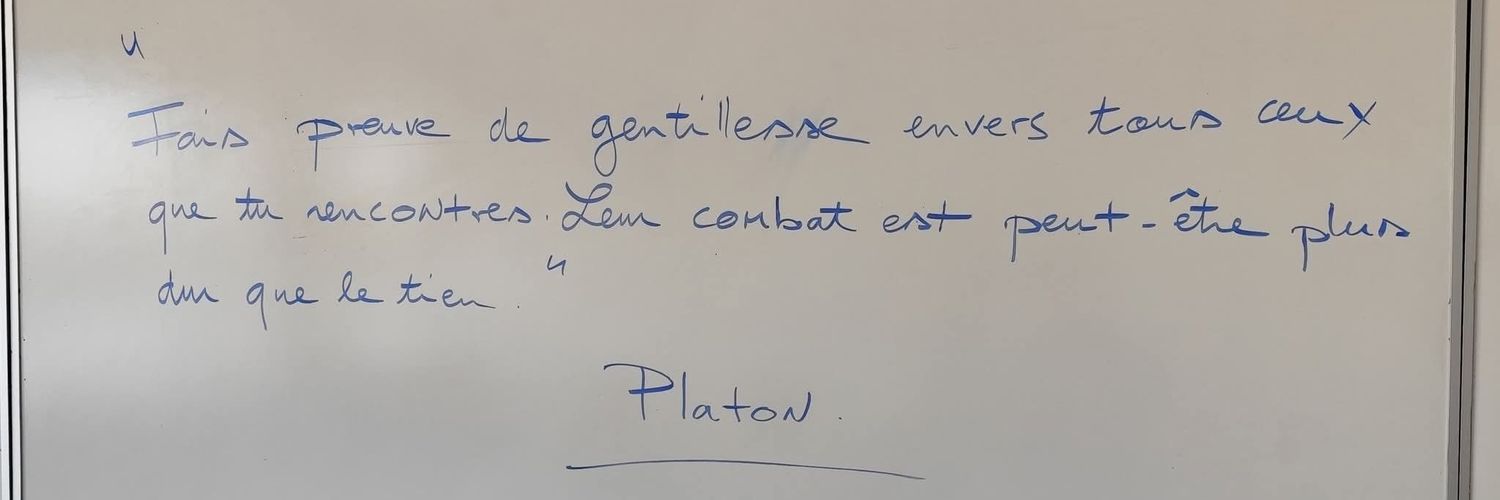 "
Fais preuve de gentillesse envers tous ceux
que tu rencontres. Leur combat est peut-être plus
dur que le tien."
Platon.